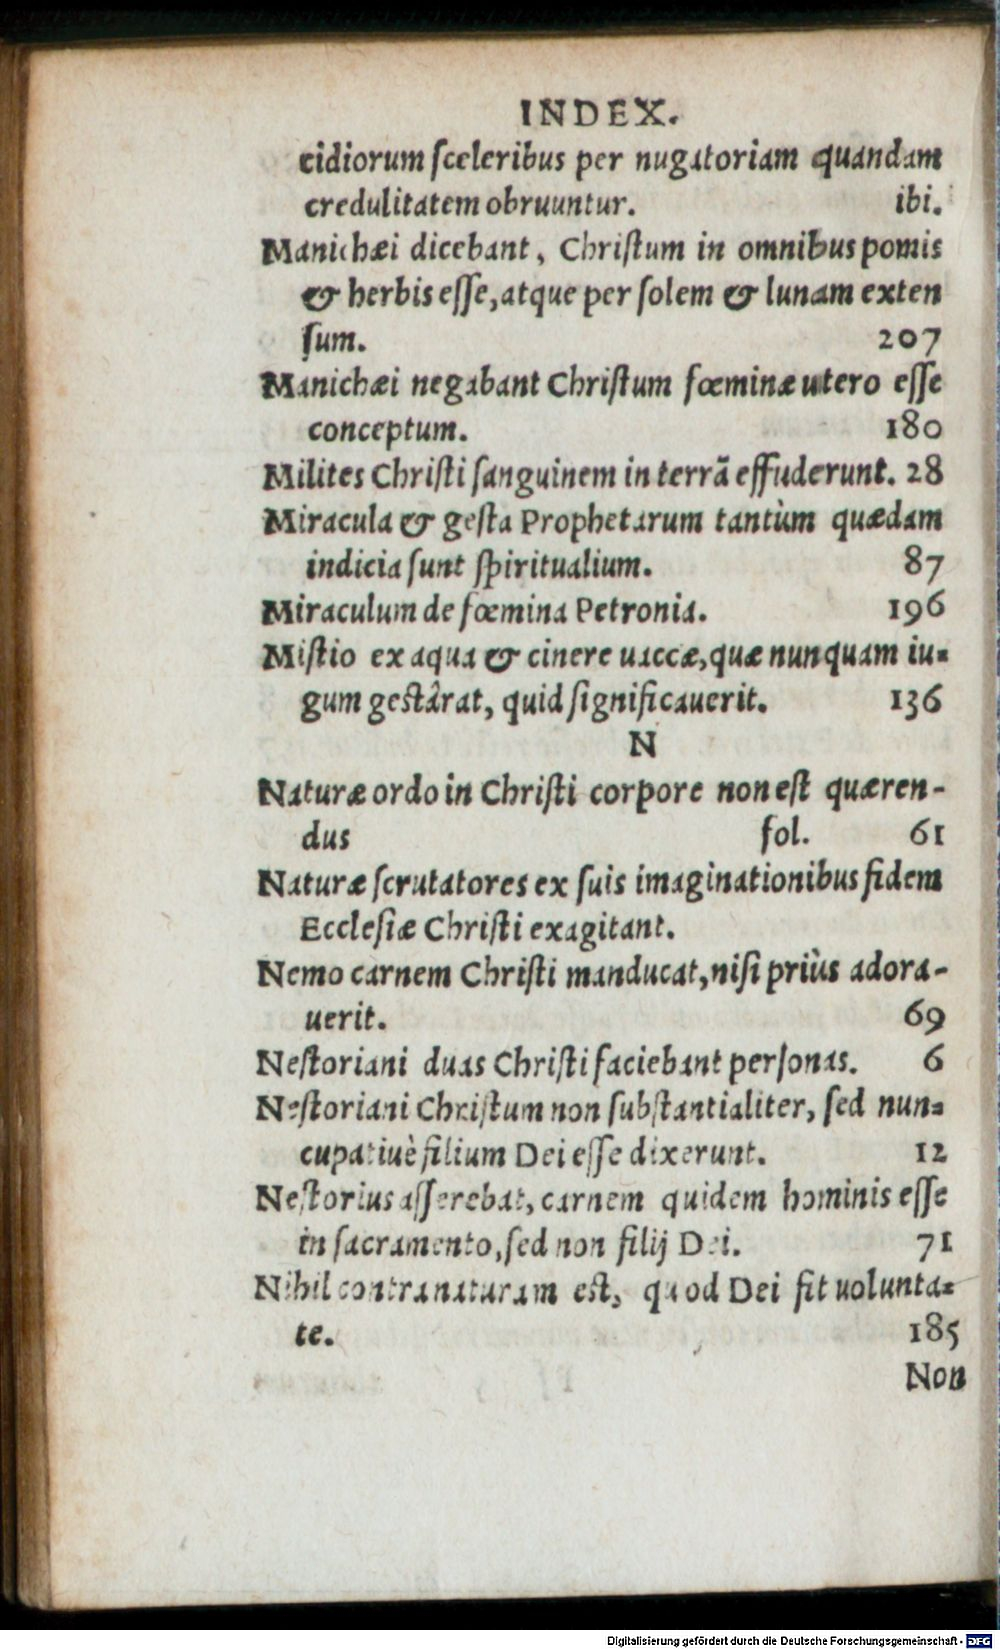 INDEX.
cidiorum ſceleribus per nugatoriam quandam
credulitatem obruuntur. ibi.
Manichæi dicebant, Chriſtum in omnibus pomis
& herbis eſſe, atque per ſolem & lunam exten
ſum. 207
Manichæi negabant Chriſtum fœminæ utero eſſe
conceptum. 180
Milites Chriſti ſanguinem in terrã effuderunt. 28
Miracula & geſta Prophetarum tantùm quædam
indicia ſunt ſpiritualium. 87
Miraculum de fœmina Petronia. 196
Miſtio ex aqua & cinere uaccæ, quæ nunquam iu-
gum geſtârat, quid ſignificauerit. 136
N
Naturæ ordo in Chriſti corpore non eſt quæren-
dus fol. 61
Naturæ ſcrutatores ex ſuis imaginationibus fidem
Eccleſiæ Chriſti exagitant.
Nemo carnem Chriſti manducat, niſi priùs adora-
uerit. 69
Neſtoriani duas Chriſti faciebant perſonas. 6
Neſtoriani Chriſtum non ſubſtantialiter, ſed nun-
cupatiuè filium Dei eſſe dixerunt. 12
Neſtorius aſſerebat, carnem quidem hominis eſſe
in ſacramento, ſed non filij Dei. 71
Nihil contra naturam eſt, quod Dei fit uolunta-
te. 185
Non
Digitalisierung gefördert durch die Deutsche Forschungsgemeinschaft - DFG